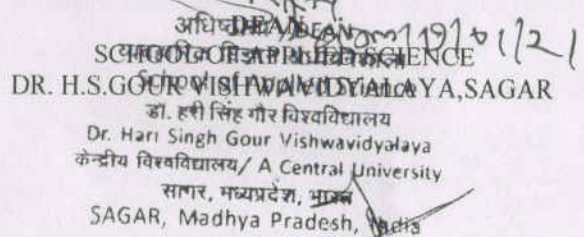 अधिष्ठाता/DEAN
DEAN
19/01/21
SCHOOL OF APPLIED SCIENCE
School of Applied Science
DR. H.S.GOUR VISHWAVIDYALAYA,SAGAR
डॉ. हरी सिंह गौर विश्वविद्यालय
Dr. Hari Singh Gour Vishwavidyalaya
केन्द्रीय विश्वविद्यालय/ A Central University
सागर, मध्यप्रदेश, भारत
SAGAR, Madhya Pradesh, India